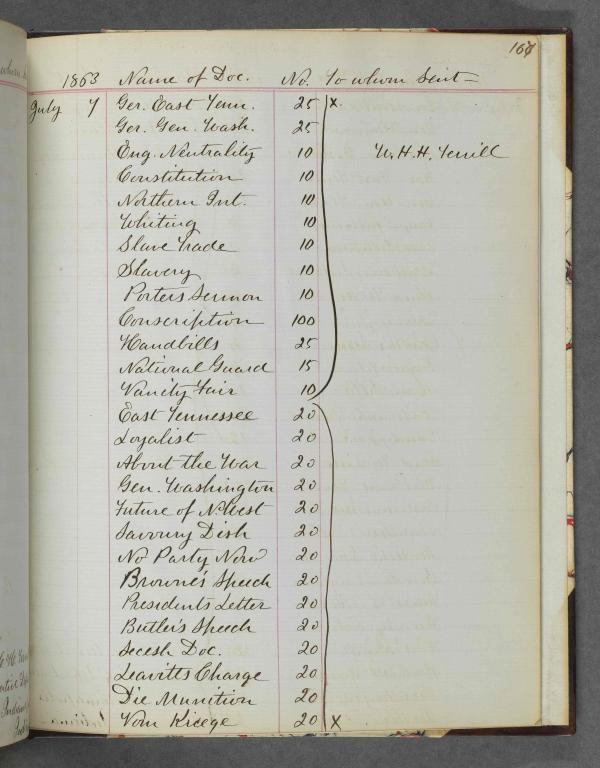 167
1863 Name of Doc. No. To whom Sent
July 7 Ger. East Tenn. 25 x
Ger. Gen. Wash. 25
Eng. Neutrality 10 W.H.H. Terrill
Constitution 10
Northern Int. 10
Whiting 10
Slave Trade 10
Slavery 10
Porters Sermon 10
Conscription 100
Handbills 25
National Guard 15
Vanity Fair 10
East Tennessee 20
Loyalist 20
About the War 20
Gen. Washington 20
Future of N.West 20
Savoury Dish 20
No Party Now 20
Browne's Speech 20
Presidents Letter 20
Butler's Speech 20
Secesh Doc. 20
Leavitts Charge 20
Die Munition 20
Vom Kriege 20 x